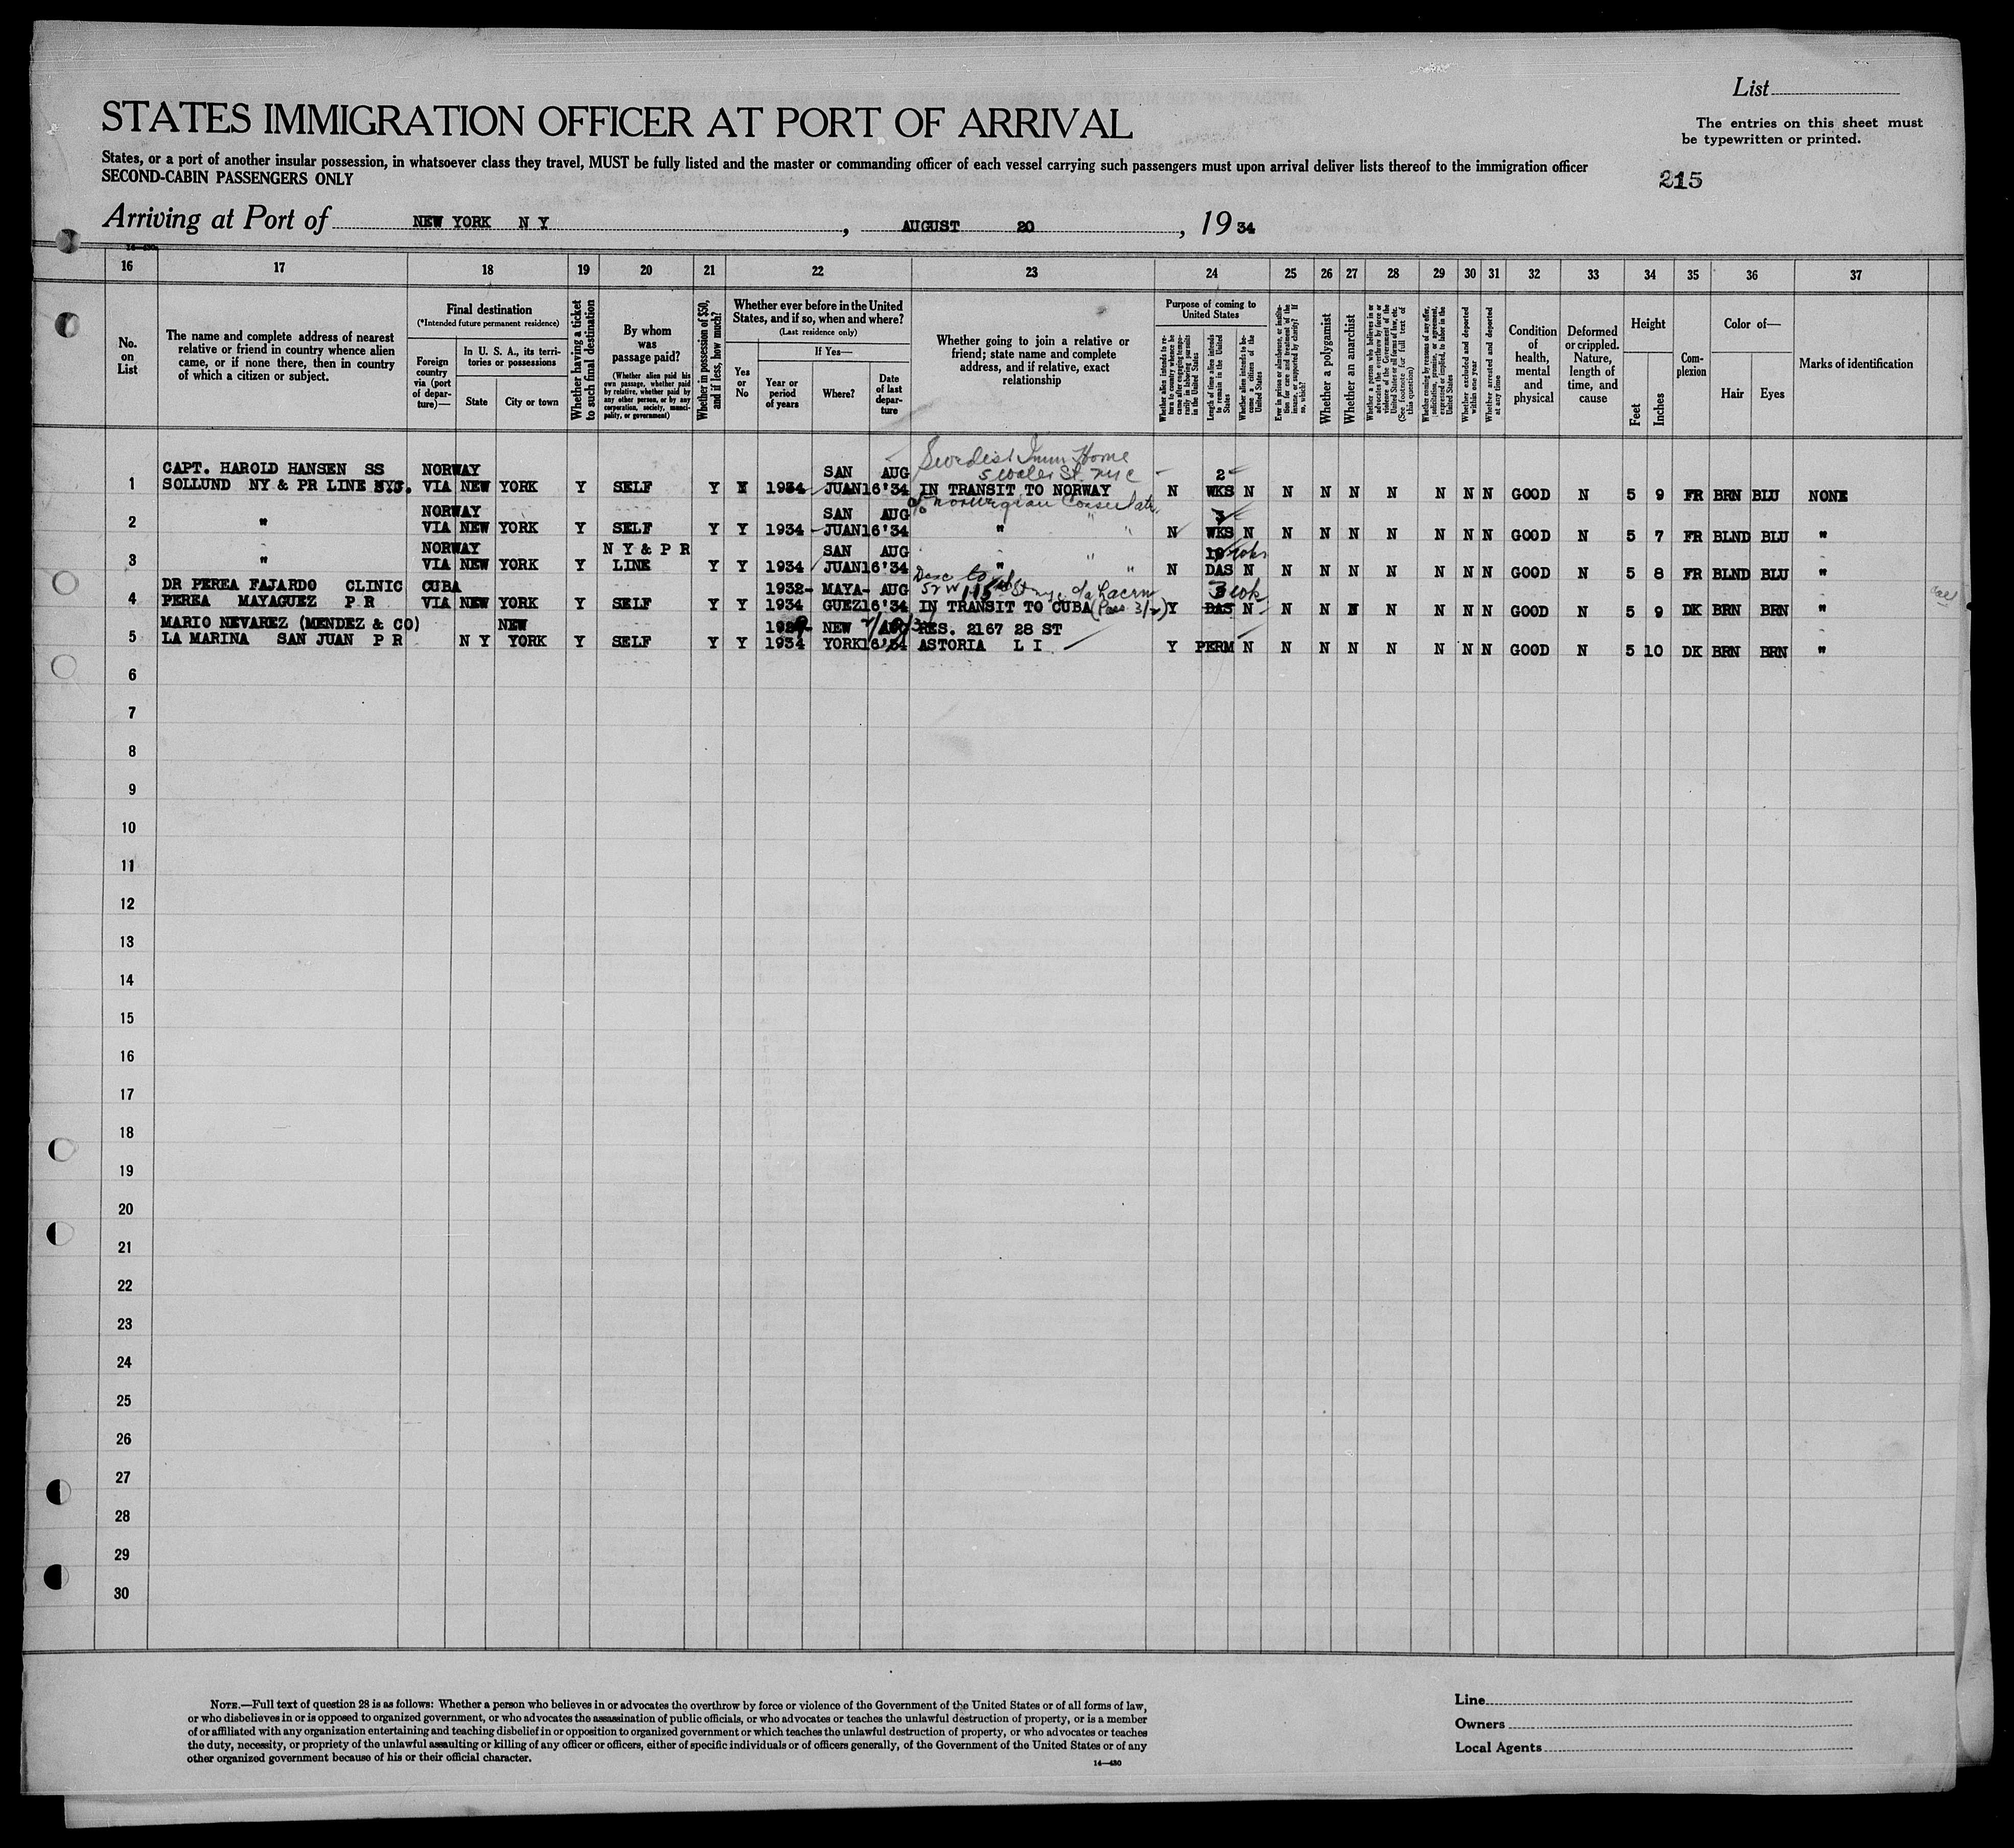 List
STATES IMMIGRATION OFFICER AT PORT OF ARRIVAL
The entries on this sheet must
be typewritten or printed.
States, or a port of another insular possession, in whatsoever class they travel, MUST be fully listed and the master or commanding officer of each vessel carrying such passengers must upon arrival deliver lists thereof to the immigration officer
SECOND-CABIN PASSENGERS ONLY
215
Arriving at Port of NEW YORK N Y, AUGUST 20, 19 34
16 17 18 19 20 21 22 23 24 25 26 27 28 29 30 31 32 33 34 35 36 37
No. on List
The name and complete address of nearest relative or friend in country whence alien came, or if none there, then in country of which a citizen or subject.
Final destination
(*Intended future permanent residence)
Foreign country via (port of departure)—
In U. S. A., its territories or possessions
State
City or town
Whether having a ticket to such final destination
By whom was passage paid?
(Whether alien paid his own passage, whether paid by relative, whether paid by any other person, or by any corporation, society, municipality, or government)
Whether in possession of $50, and if less, how much?
Whether ever before in the United States, and if so, when and where?
(Last residence only)
Yes or No
If Yes—
Year or period of years
Where?
Date of last departure
Whether going to join a relative or friend; state name and complete address, and if relative, exact relationship
Purpose of coming to United States
Length of time alien intends to remain in the United States
Whether alien intends to become a citizen of the United States
Whether a polygamist
Whether an anarchist
Whether excluded and deported within one year
Whether arrested and deported at any time
Condition of health, mental and physical
Deformed or crippled. Nature, length of time, and cause
Height
Feet
Inches
Complexion
Color of—
Hair
Eyes
Marks of identification
Swedish Imm Home
5 Water St. NYC
CAPT. HAROLD HANSEN SS NORWAY SAN AUG 2
1 SOLLUND NY & PR LINE NYC. VIA NEW YORK Y SELF Y 1934 JUAN 16'34 IN TRANSIT TO NORWAY N WKS N N N N N N N N GOOD N 5 9 FR BRN BLU NONE
c/o Norwegian Consulate
NORWAY SAN AUG 3
2 " VIA NEW YORK Y SELF Y Y 1934 JUAN 16'34 " N WKS N N N N N N N N GOOD N 5 7 FR BLND BLU "
NORWAY N Y & P R SAN AUG wks
3 " VIA NEW YORK Y LINE Y Y 1934 JUAN 16'34 " N DAS N N N N N N N N GOOD N 5 8 FR BLND BLU "
DR PEREA FAJARDO CLINIC CUBA 1932- MAYA- AUG 3 wk
4 PEREA MAYAGUEZ P R VIA NEW YORK Y SELF Y Y 1934 GUEZ 16'34 IN TRANSIT TO CUBA Y DAS N N N N N N N N GOOD N 5 9 DK BRN BRN "
MARIO NEVAREZ (MENDEZ & CO) NEW NEW RES. 2167 28 ST
5 LA MARINA SAN JUAN P R N Y YORK Y SELF Y Y 1934 YORK 16'34 ASTORIA L I Y PERM N N N N N N N N GOOD N 5 10 DK BRN BRN "
6
7
8
9
10
11
12
13
14
15
16
17
18
19
20
21
22
23
24
25
26
27
28
29
30
NOTE.—Full text of question 28 is as follows: Whether a person who believes in or advocates the overthrow by force or violence of the Government of the United States or of all forms of law,
or who disbelieves in or is opposed to organized government, or who advocates the assassination of public officials, or who advocates or teaches the unlawful destruction of property, or is a member
of or affiliated with any organization entertaining and teaching disbelief in or opposition to organized government or which teaches the unlawful destruction of property, or who advocates or teaches
the duty, necessity, or propriety of the unlawful assaulting or killing of any officer or officers, either of specific individuals or of officers generally, of the Government of the United States or of any
other organized government because of his or their official character.
14—430
Line
Owners
Local Agents